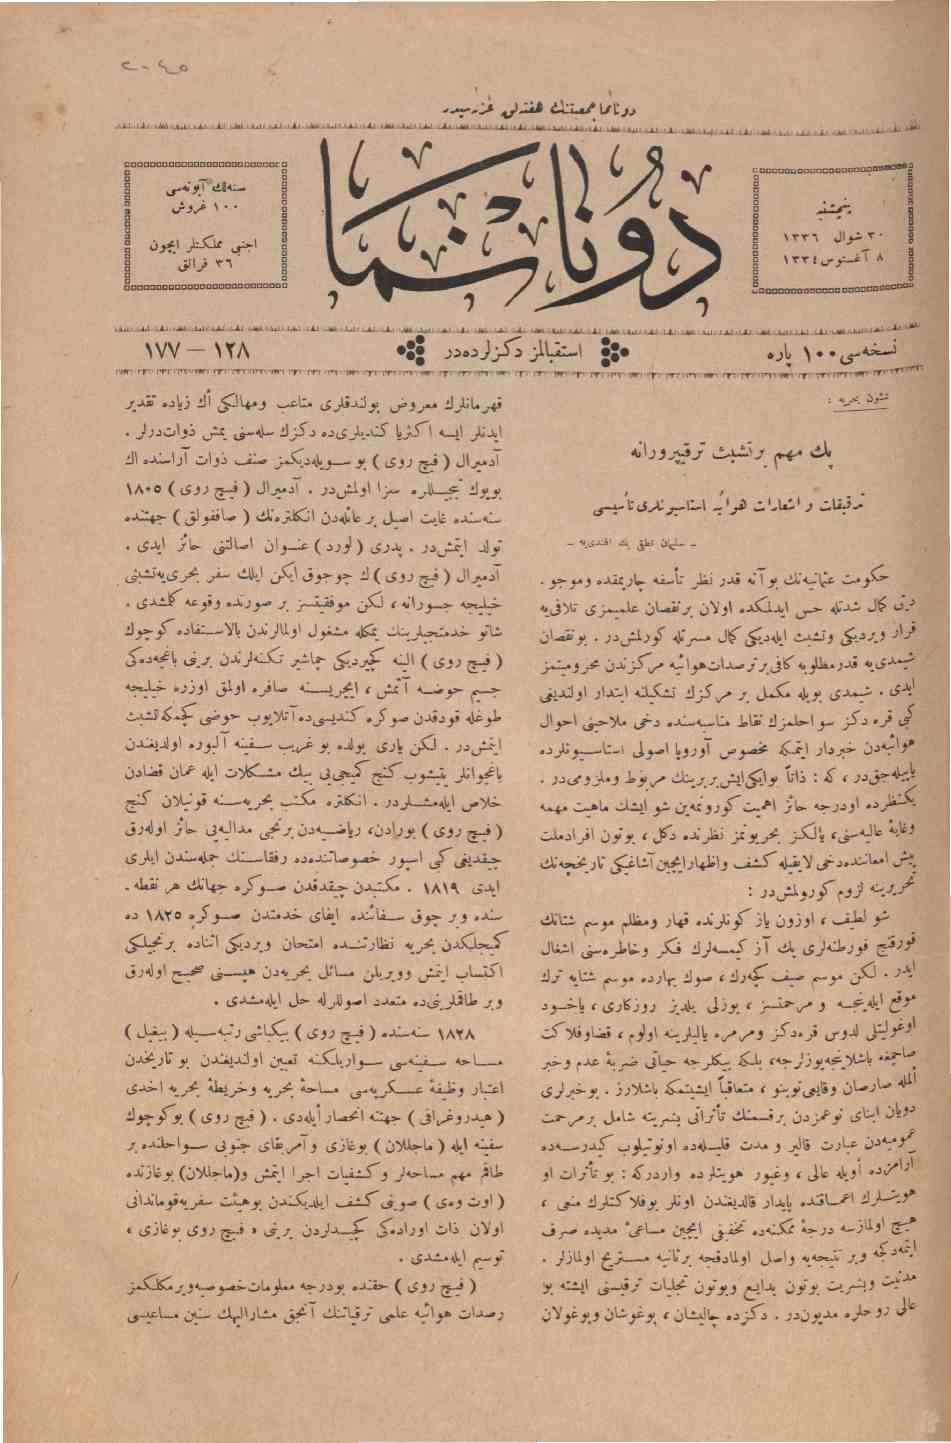 ٢٠٤٥
دونانما جمعيتنك هفته لق غزته سيدر
پنجشنبه
٣٠ شوال ١٣٣٦
٨ آغستوس ١٣٣٤
دونانما
سنه‌لك آبونه‌سى
١٠٠ غروش
اجنبى مملكتلر ايچون
٣٦ فرانق
نسخه‌سى ١٠٠ پاره
استقبالمز دكزلرده‌در
١٢٨ — ١٧٧
شئون بحريه :
پك مهم بر تشبث ترقيپرورانه
تدقيقات و اشعارات هوائيه استاسيونلرى تأسيسى
- سليمان نطقى بك افندى‌يه -
حكومت عثمانيه‌نك بو آنه قدر نظر تأسفه چارپمقده وموجو .
ديتى كمال شدتله حس ايدلمكده اولان بر نقصان علميمزى تلافى‌يه
قرار ويرديكى وتشبث ايله‌ديكى كمال مسرتله كورلمش‌در . بو نقصان
شيمدى‌يه قدر مطلوبه كافى بر ترصدات هوائيه مركزندن محروميتمز
ايدى . شيمدى بويله مكمل بر مركزك تشكيلنه ابتدار اولنديغى
كبى قره دكز سواحلمزك نقاط مناسبه‌سنده دخى ملاحينى احوال
هوائيه‌دن خبردار ايتمكه مخصوص آوروپا اصولى استاسيونلرده
ياپيله‌جق‌در ، كه : ذاتاً بوايكى‌ايش بربرينك مربوط وملزومى‌در .
يكنظرده اودرجه حائز اهميت كورونمه‌ين شو ايشك ماهيت مهمه
وغايهٔ عاليه‌سنى، يالكز بحريونمز نظرنده دكل ، بوتون افرادملت
پيش امعاننده‌دخى لايقيله كشف واظهارايچين آشاغيكى تاريخچه‌نك
تحريرينه لزوم كورولمش‌در :
شو لطيف ، اوزون ياز كونلرنده قهار ومظلم موسم شتانك
قورقنج فورطنه‌لرى پك آز كيمسه‌لرك فكر وخاطره‌سنى اشغال
ايدر . لكن موسم صيف كچه‌رك ، صوك بهارده موسم شتايه ترك
موقع ايله‌ينجه و مرحمتسز ، بوزلى يلديز روزكارى ، ياخود
اوغولتيلى لدوس قره‌دكز ومرمره ياليلرينه اولوم ، قضاوفلاكت
صاچمغه باشلاينجه‌يوزلرجه، بلكه بيكلرجه حياتى ضربهٔ عدم وخبر
المله صارصان وقايعى‌توينو ، متعاقباً ايشيتمكه باشلارز . بوخبرلرى
دويان ابناى نوعمزدن برقسمنك تأثراتى بشريته شامل برمرحمت
عموميه‌دن عبارت قالير و مدت قليله‌ده اونوتيلوب كيدرسه‌ده
آرامزده اويله عالى ، وغيور هويتلرده واردركه : بو تأثرات او
هويتلرك اعماقنده پايدار قالديغندن اونلر بوفلاكتلرك منعى ،
هيچ اولمازسه درجهٔ ممكنه‌ده تخفيفى ايچين مساعئ مديده صرف
ايتمه‌دكجه وبر نتيجه‌يه واصل اولمادقجه برثانيه مستريح اولمازلر .
مدنيت وبشريت بوتون بدايع وبوتون تجليات ترقيسنى ايشته بو
عالى روحلره مديون‌در . دكزده چاليشان ، بوغوشان وبوغولان
قهرمانلرك معروض بولندقلرى متاعب ومهالكى اك زياده تقدير
ايدنلر ايسه اكثريا كنديلرى‌ده دكزك سله‌سنى يمش ذوات‌درلر .
آدميرال ( فيچ روى ) بو سويله‌ديكمز صنف ذوات آراسنده اك
بويوك تبجيللره سزا اولمش‌در . آدميرال ( فيچ روى ) ١٨٠٥
سنه‌سنده غايت اصيل بر عائله‌دن انكلتره‌نك ( صاففولق ) جهتنده
تولد ايتمش‌در . پدرى ( لورد ) عنوان اصالتنى حائز ايدى .
آدميرال ( فيچ روى ) ك چوجوق ايكن ايلك سفر بحرى‌يه‌تشبثى
خيليجه جسورانه ، لكن موفقيتسز بر صورتده وقوعه كلمشدى .
شاتو خدمتجيلرينك يمكله مشغول اولمالرندن بالاستفاده كوچوك
( فيچ روى ) الينه كچيرديكى چماشير تكنه‌لرندن برينى باغچه‌ده‌كى
جسيم حوضه آتمش ، ايچريسنه صافره اولمق اوزره خيليجه
طوغله قودقدن صوكره كنديسى‌ده آتلايوب حوضى كچمكه‌تشبث
ايتمش‌در . لكن يارى يولده بو غريب سفينه آلبوره اولديغندن
باغچوانلر يتيشوب كنج كميجى‌يى بيك مشكلات ايله غمان قضادن
خلاص ايله‌مشلردر . انكلتره مكتب بحريه‌سنه قونيلان كنج
( فيچ روى ) بورادن، رياضيه‌دن برنجى مداليه‌يى حائز اوله‌رق
چيقديغى كبى اسپور خصوصاتنده‌ده رفقاسنك جمله‌سندن ايلرى
ايدى ١٨١٩ . مكتبدن چيقدقدن صوكره جهانك هر نقطه .
سنده وبر چوق سفائنده ايفاى خدمتدن صوكره ١٨٢٥ ده
كميجلكدن بحريه نظارتنده امتحان ويرديكى اثناده برنجيلكى
اكتساب ايتمش وويريلن مسائل بحريه‌دن هپسنى صحيح اوله‌رق
وبر طاقملرينى‌ده متعدد اصوللرله حل ايله‌مشدى .
١٨٢٨ سنه‌سنده ( فيچ روى ) بيكباشى رتبه‌سيله ( بيغيل )
مساحه سفينه‌سى سواريلكنه تعيين اولنديغندن بو تاريخدن
اعتبار وظيفهٔ عسكريه‌سى مساحهٔ بحريه وخريطهٔ بحريه اخذى
( هيدروغرافى ) جهتنه انحصار ايله‌دى . ( فيچ روى ) بوكوچوك
سفينه ايله ( ماجللان ) بوغازى و آمريقاى جنوبى سواحلنده بر
طاقم مهم مساحه‌لر و كشفيات اجرا ايتمش و(ماجللان) بوغازنده
( اوت وه‌ى ) صوينى كشف ايلديكندن بوهيئت سفريه‌قوماندانى
اولان ذات اوراده‌كى كچيدلردن برينى « فيچ روى بوغازى »
توسيم ايله‌مشدى .
( فيچ روى ) حقنده بودرجه معلومات خصوصيه‌ويرمكلكمز
رصدات هوائيه علمى ترقياتنك آنجق مشاراليهك سنين مساعيسى